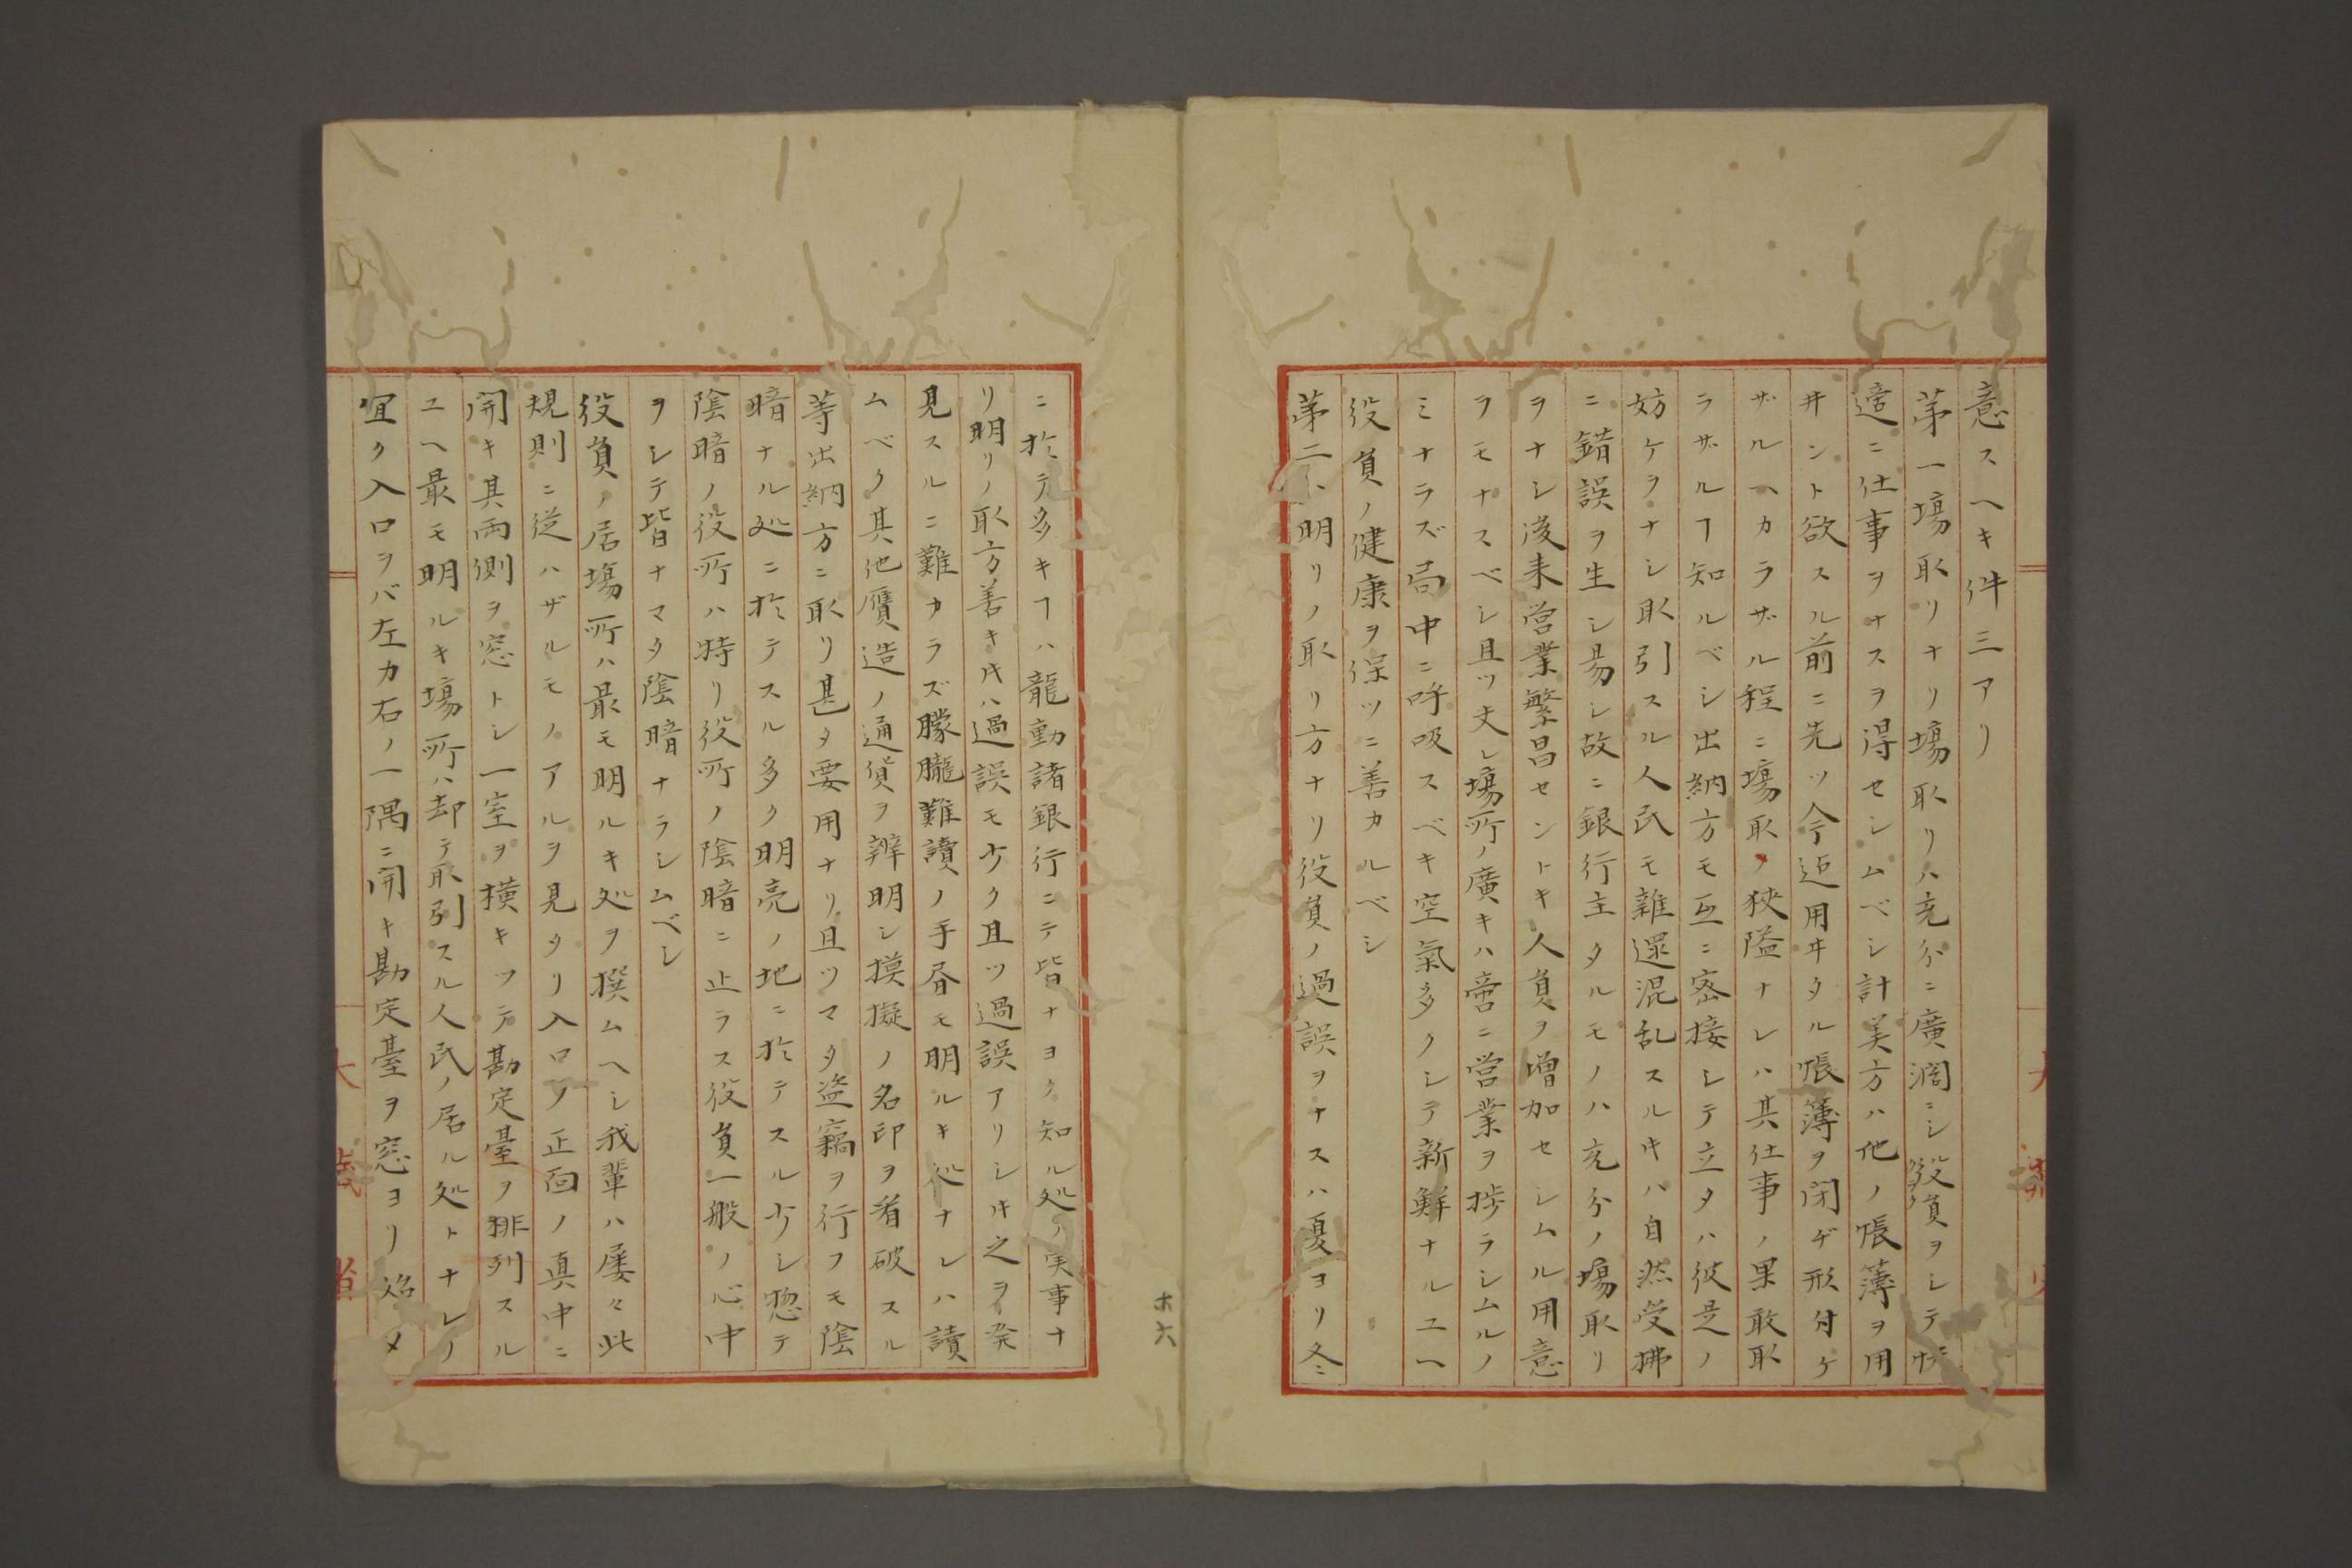 意スヘキ件三アリ
第一場取リナリ場取リハ充分ニ廣濶ニシ役員ヲシテ
適ニ仕事ヲナスヲ得セシムベシ計算方ハ他ノ帳簿ヲ用
井ント欲スル前ニ先ツ今迠用ヰタル帳簿ヲ閉ゲ形付ケ
ザルヘカラザル程ニ場取ノ狹隘ナレハ其仕事ノ果敢取
ラザルヿ知ルベシ出納方モ互ニ密接シテ立タハ彼是ノ
妨ケヲナシ取引スル人民モ雜還混乱スルキハ自然受拂
ニ錯誤ヲ生シ易シ故ニ銀行主タルモノハ充分ノ場取リ
ヲナシ後来営業繁昌セントキ人員ヲ増加セシムル用意
ヲモナスベシ且ツ丈レ場所ノ廣キハ啻ニ営業ヲ捗ラシムルノ
ミナラズ局中ニ呼吸スベキ空氣多クシテ新鮮ナルユヘ
役員ノ健康ヲ保ツニ善カルベシ
第二ハ明リノ取リ方ナリ役員ノ過誤ヲナスハ夏ヨリ冬ニ
ニ於テ多キヿハ龍動諸銀行ニテ皆ナヨク知ル処ノ実事ナ
リ明リノ取方善キ圷ハ過誤モ少ク且ツ過誤アリシ圷之ヲ発
見スルニ難カラズ朦朧難讀ノ手昏モ明ルキ処ナレハ讀
ムベク其他贋造ノ通貨ヲ辨明シ摸擬ノ名印ヲ看破スル
等出納方ニ取リ甚タ要用ナリ且ツマタ盗竊ヲ行フモ陰
暗ナル処ニ於テスル多ク明亮ノ地ニ於テスル少シ惣テ
陰暗ノ役所ハ特リ役所ノ陰暗ニ止ラス役員一般ノ心中
ヲシテ皆ナマタ陰暗ナラシムベシ
役員ノ居場所ハ最モ明ルキ処ヲ撰ムヘシ我輩ハ屡々此
規則ニ従ハザルモノアルヲ見タリ入口ヲ正面ノ真中ニ
開キ其両側ヲ窓トシ一室ヲ横キツテ勘定臺ヲ排列スル
ユヘ最モ明ルキ場所ハ却テ取引スル人民ノ居ル処トナレリ
宜ク入口ヲバ左カ右ノ一隅ニ開キ勘定臺ヲ窓ヨリ始メ
ホ六
大藏省